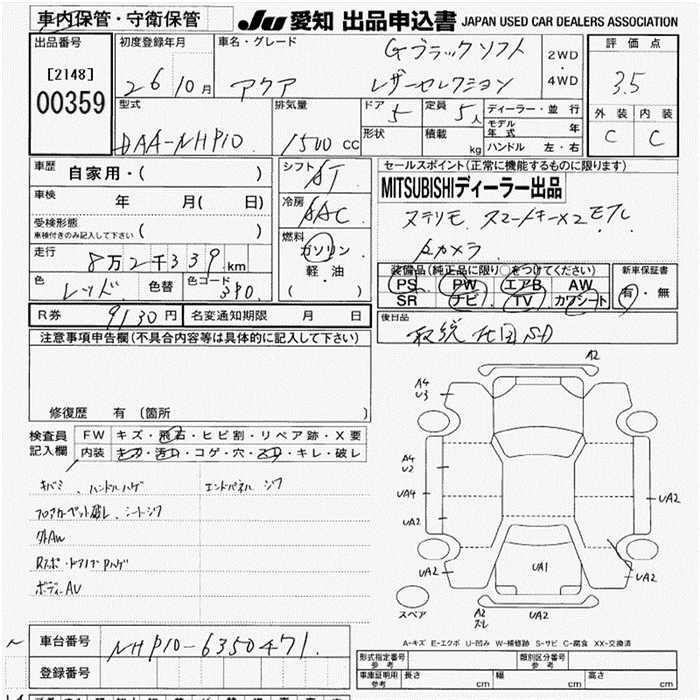 車内保管・守衛保管
JU 愛知 出品申込書 JAPAN USED CAR DEALERS ASSOCIATION
出品番号 初度登録年月 車名・グレード Gブラックソフト 2WD 評価点
[2148] 26 10月 アクア レザーセレクション ・ 3.5
00359 4WD
型式 排気量 ドア 5 定員 5人 ディーラー・並行 外装 内装
DAA-NHP10 1500cc 形状 積載 kg モデル年式 年 C C
ハンドル 左・右
車歴 自家用・( ) シフト AT セールスポイント(正常に機能するものに限ります)
車検 年 月( 日) 冷房 AAC MITSUBISHIディーラー出品
受検形態 ステリモ スマートキー×2 ETC
車検付きのみ記入して下さい( ) 燃料 Bカメラ
走行 8万2千339km ガソリン 装備品(純正品に限り○をつけてください) 新車保証書
色 レッド 色替 色コード 3P0. 軽・油 PS PW エアB AW 有・無
( ) SR ナビ TV カワシート
R券 9130円 名変通知期限 月 日 後日品
注意事項申告欄(不具合内容等は具体的に記入して下さい) 取説 地図SD
修復歴 有 (箇所 )
検査員 FW キズ・飛石・ヒビ割・リペア跡・X要
記入欄 内装 キズ・汚れ・コゲ・穴・スレ・キレ・破レ
キバミ、ハンドルハゲ エンドパネル ジワ
フロアカーペット破レ、シートシワ
外AW
Rスポ・ドアノブPハゲ
ボディーAV
A2
A4
U3
A4
U2
UA4
UA2
UA2
UA2
UA1
UA2
スペア
A2
スレ
UA2
A-キズ E-エクボ U-凹み W-補修跡 S-サビ C-腐食 XX-交換済
車台番号 NHP10-6350471.
登録番号
形式指定番号 参考 類別区分番号 参考
車庫証明用 参考 長さ cm 幅 cm 高さ cm